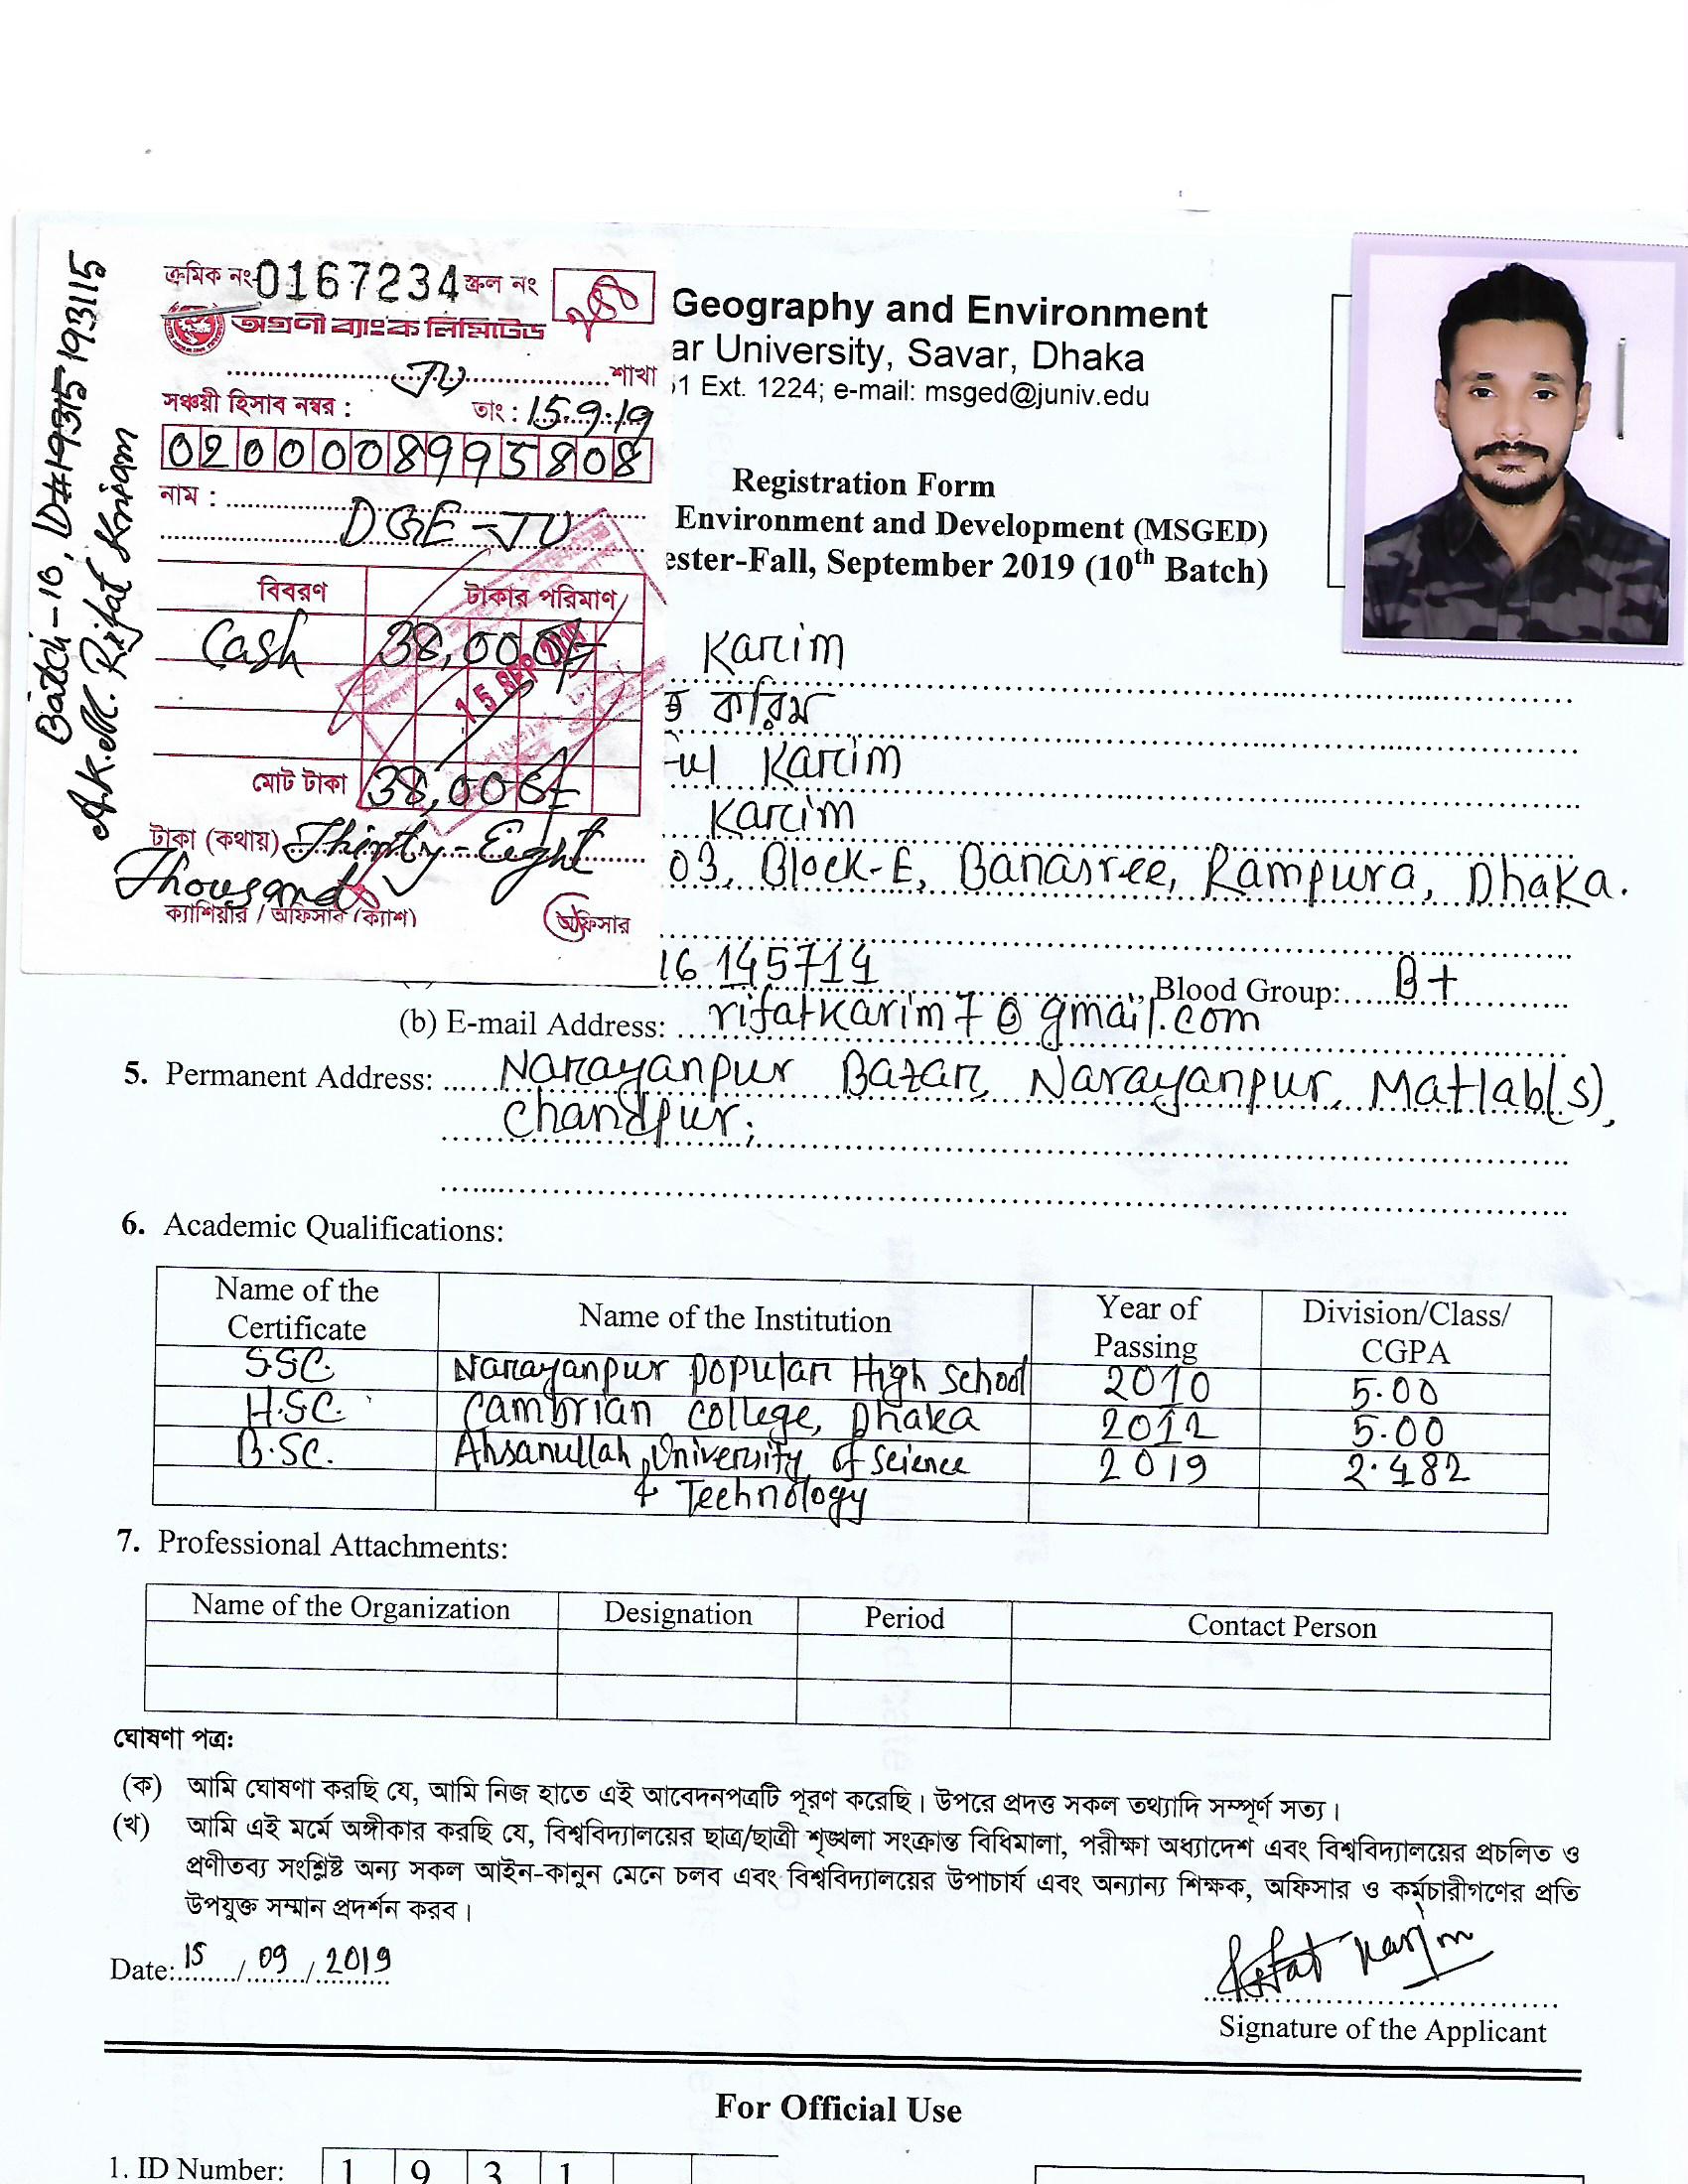 Batch-10, ID#1931519 3115
A.K.M. Rifat Karim
ক্রমিক নং 0167234 স্ক্রল নং
অগ্রণী ব্যাংক লিমিটেড
JU শাখা
সঞ্চয়ী হিসাব নম্বর : তাং : 15.9.19
0200008995808
নাম :
DGE-JU
বিবরণ টাকার পরিমাণ
Cash 38,000/-
15 SEP 2019
মোট টাকা 38,000/-
টাকা (কথায়) Thirty-Eight
Thousand
ক্যাশিয়ার / অফিসার (ক্যাশ) অফিসার
Geography and Environment
ar University, Savar, Dhaka
51 Ext. 1224; e-mail: msged@juniv.edu
Registration Form
Environment and Development (MSGED)
ester-Fall, September 2019 (10th Batch)
Karim
করিম
ul Karim
Karim
03, Block-E, Banasree, Rampura, Dhaka.
16145714, Blood Group: B+
(b) E-mail Address: rifatkarim7@gmail.com
5. Permanent Address: Narayanpur Bazar, Narayanpur, Matlab(s),
Chandpur;
6. Academic Qualifications:
Name of the Certificate Name of the Institution Year of Passing Division/Class/ CGPA
S.S.C. Narayanpur Popular High School 2010 5.00
H.S.C. Cambrian College, Dhaka 2012 5.00
B.SC. Ahsanullah University of Science 2019 2.482
& Technology
7. Professional Attachments:
Name of the Organization Designation Period Contact Person
ঘোষণা পত্র:
(ক) আমি ঘোষণা করছি যে, আমি নিজ হাতে এই আবেদনপত্রটি পূরণ করেছি। উপরে প্রদত্ত সকল তথ্যাদি সম্পূর্ণ সত্য।
(খ) আমি এই মর্মে অঙ্গীকার করছি যে, বিশ্ববিদ্যালয়ের ছাত্র/ছাত্রী শৃঙ্খলা সংক্রান্ত বিধিমালা, পরীক্ষা অধ্যাদেশ এবং বিশ্ববিদ্যালয়ের প্রচলিত ও
প্রণীতব্য সংশ্লিষ্ট অন্য সকল আইন-কানুন মেনে চলব এবং বিশ্ববিদ্যালয়ের উপাচার্য এবং অন্যান্য শিক্ষক, অফিসার ও কর্মচারীগণের প্রতি
উপযুক্ত সম্মান প্রদর্শন করব।
Date: 15 / 09 / 2019
Rifat Karim
Signature of the Applicant
For Official Use
1. ID Number: 1 9 3 1